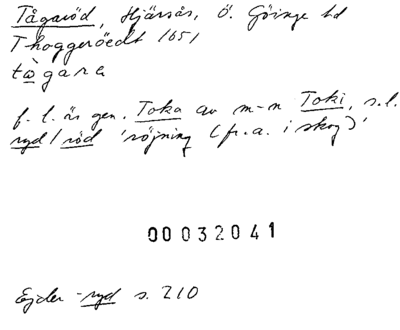 Tågaröd, Hjärsås, Ö. Göinge hd
Thoggeröedt 1651
tå̀gara
f. l. är gen. Toka av m-n Toki, s.l.
ryd/röd 'röjning (fr.a. i skog)'
00032041
Ejder -ryd s. 210